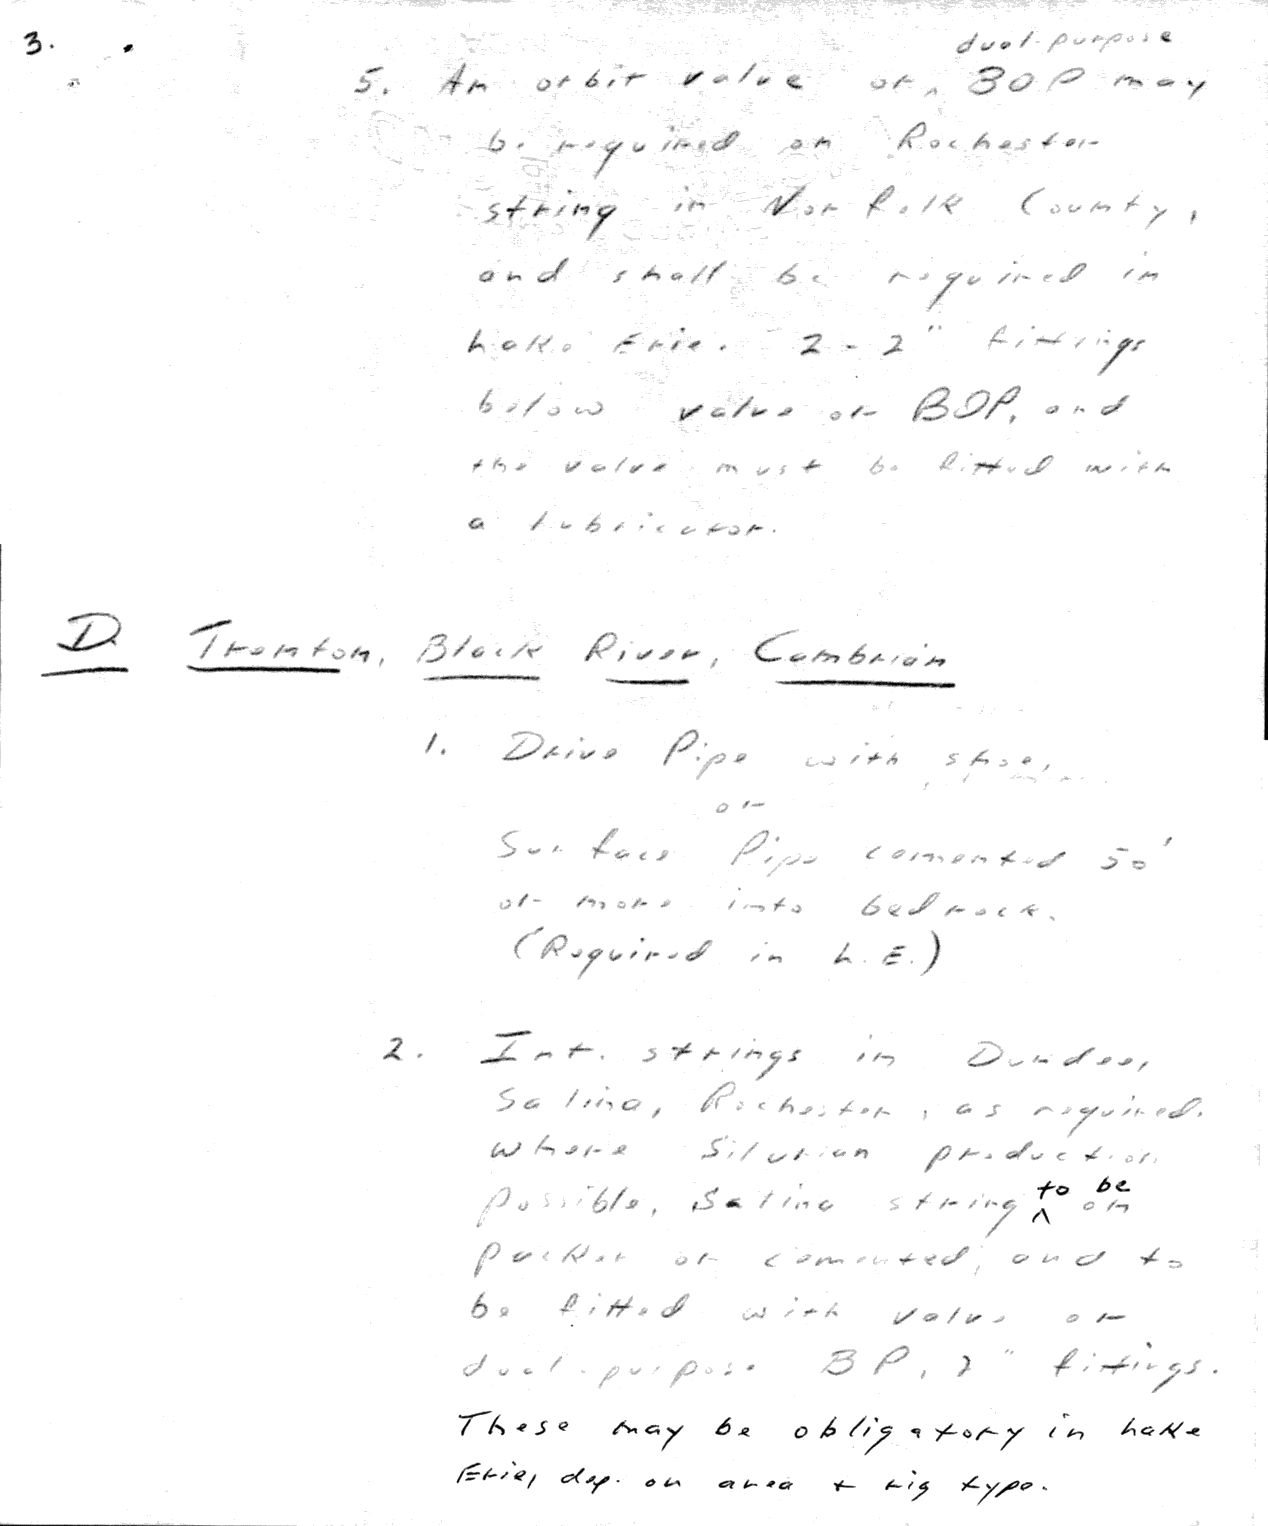 3.
dual-purpose
5. An orbit valve or ‸ BOP may
be required on Rochester
string in Norfolk County,
and shall be required in
Lake Erie. 2 - 2" fittings
below valve or BOP, and
the valve must be fitted with
a lubricator.
D Trenton, Black River, Cambrian
1. Drive Pipe with shoe,
or
Surface Pipe cemented 50'
or more into bedrock.
(Required in L.E.)
2. Int. strings in Dundee,
Salina, Rochester, as required.
Where Silurian production
to be
possible, Salina string ‸ on
packer or cemented, and to
be fitted with valve or
dual-purpose BP, 2" fittings.
These may be obligatory in Lake
Erie, dep. on area + rig type.